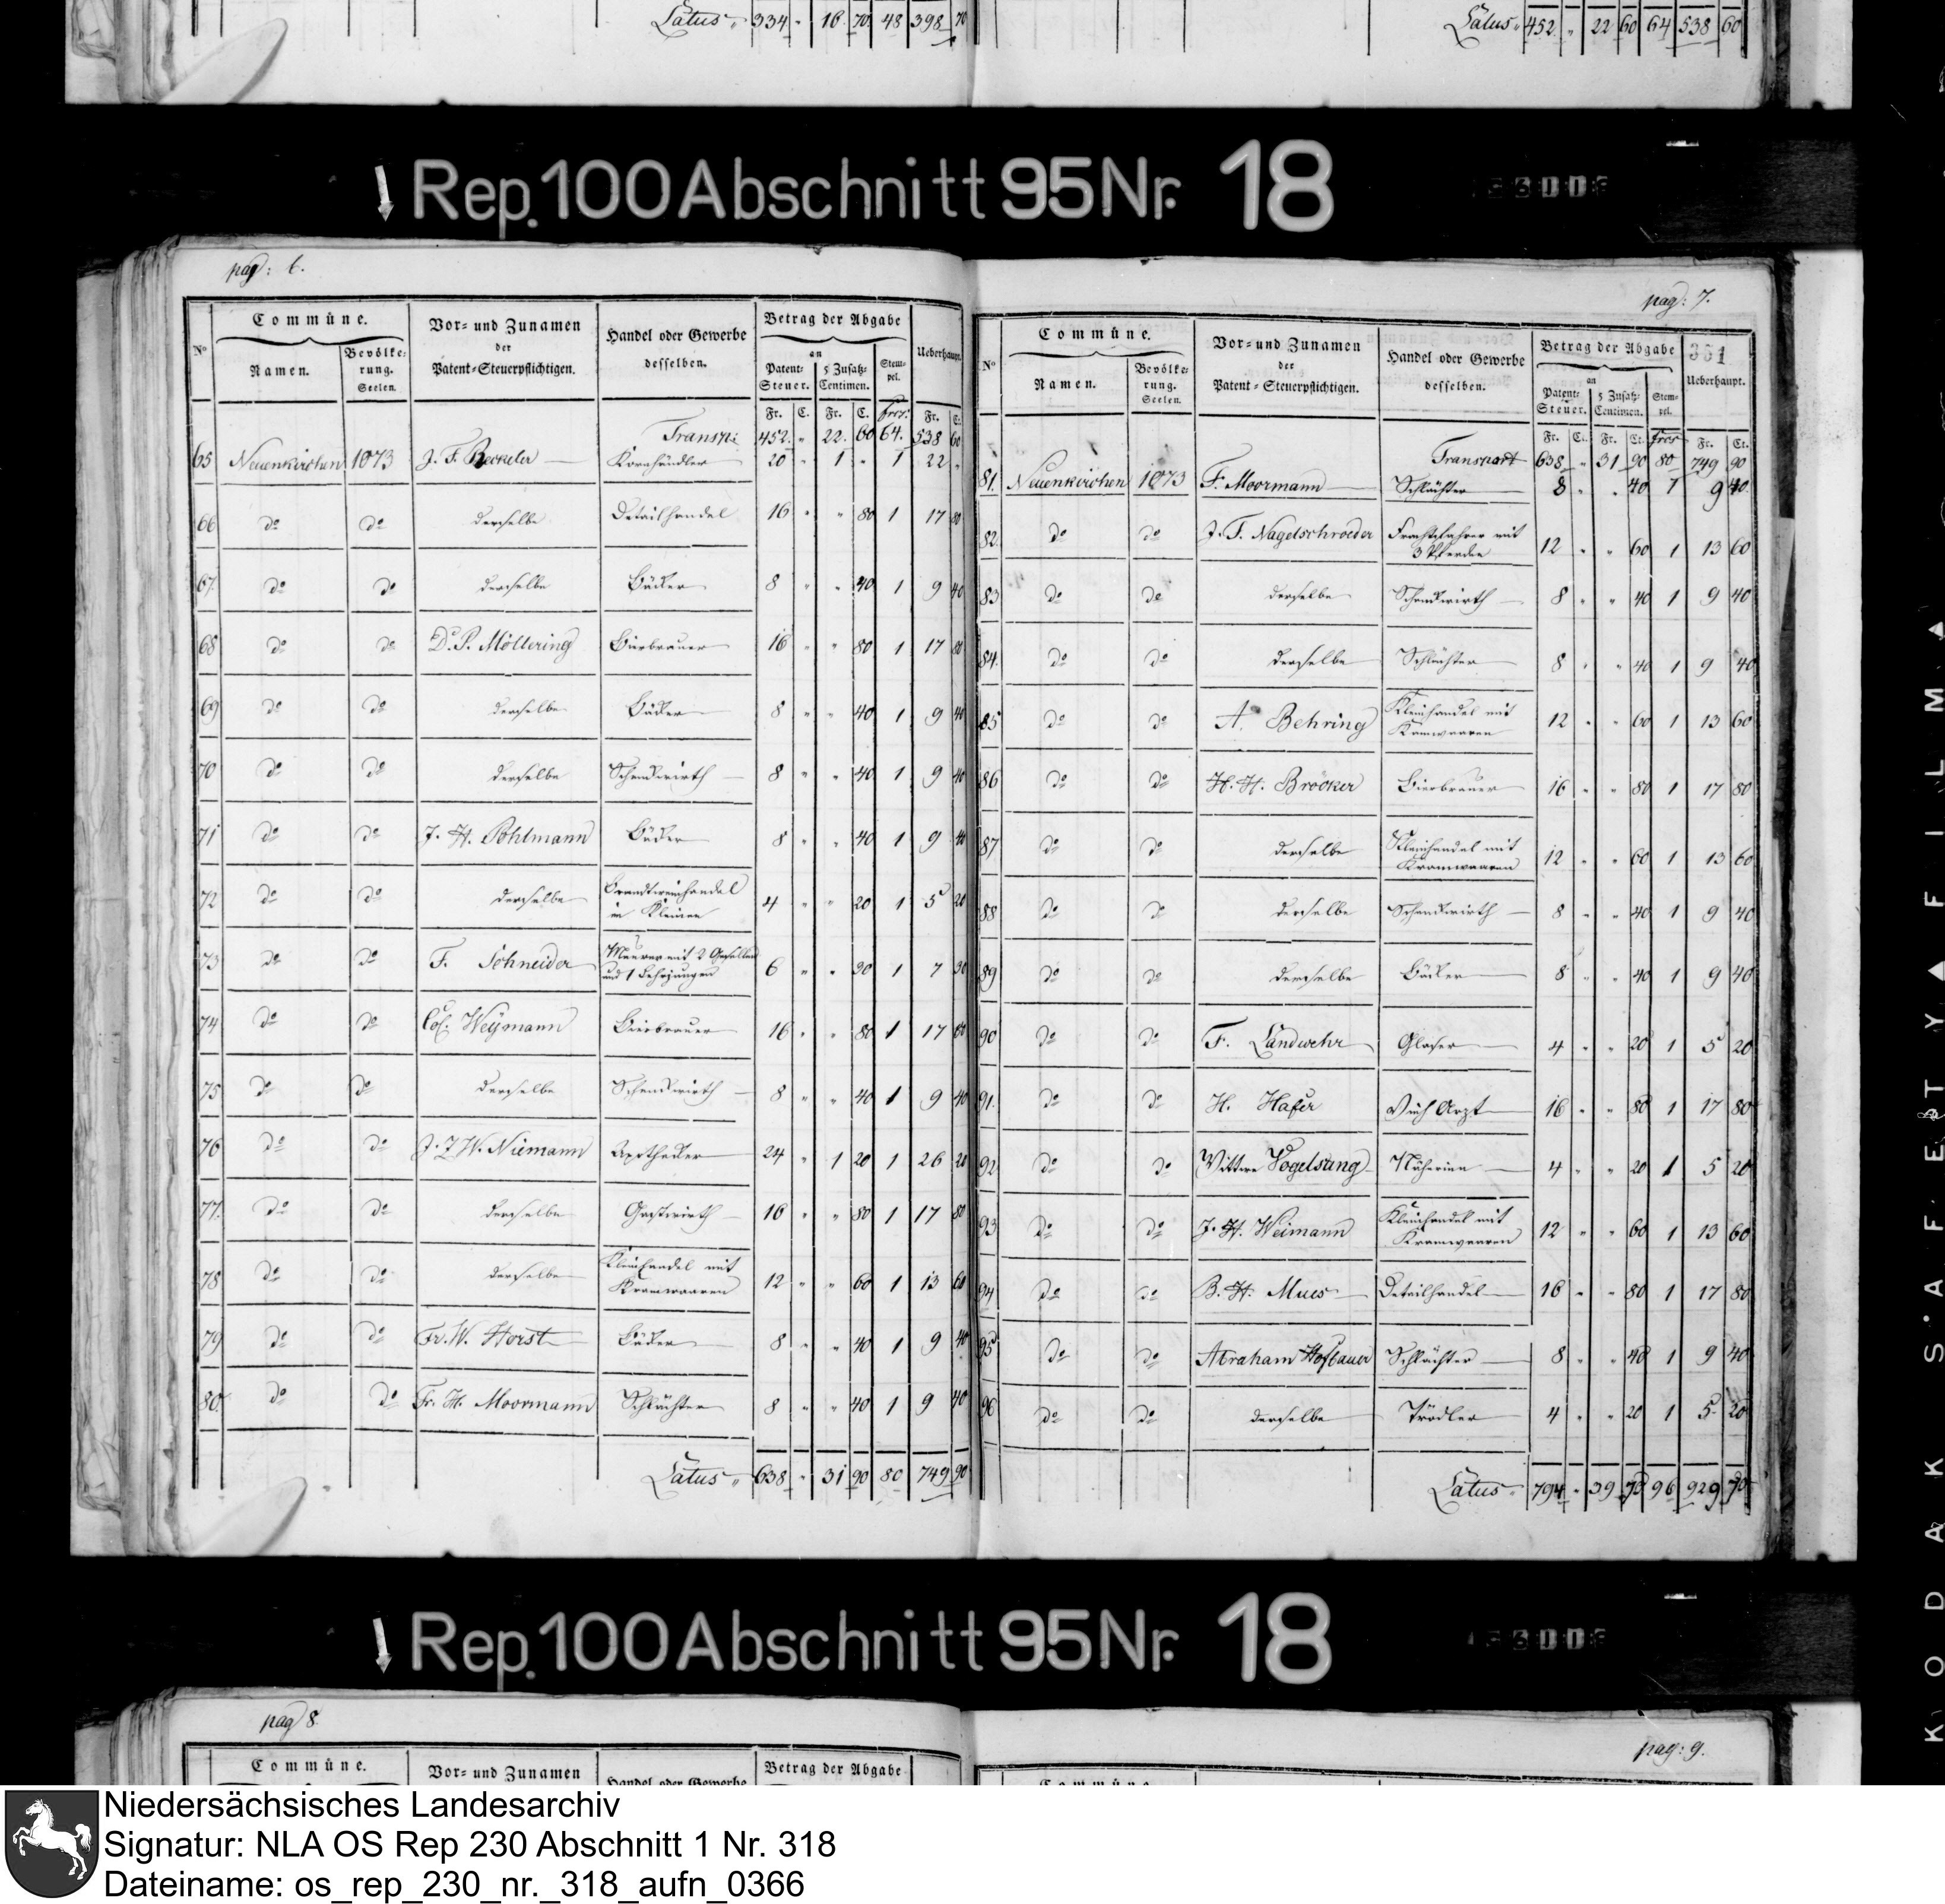 Latus „ 334 „ 16 70 48 398 70
Latus „ 452 „ 22 60 64 538 60
Rep. 100 Abschnitt 95 Nr. 18
pag: 6.
Commüne.
Vor- und Zunamen der Patent-Steuerpflichtigen.
Handel oder Gewerbe desselben.
Betrag der Abgabe
Ueberhaupt.
No
Namen.
Bevölkerung. Seelen.
an
Patent-Steuer.
5 Zusatz-Centimen.
Stempel.
Fr. C. Fr. C. Frcs. Fr. C.
Transp: 452. „ 22. 60 64. 538 60
65 Neuenkirchen 1073 J. F. Kornhändler 20 „ 1 „ 1 22 „
66 do do derselbe Detailhandel 16 „ „ 80 1 17 80
67. do do derselbe Bäcker 8 „ „ 40 1 9 40
68 do do D. P. Möllering Bierbrauer 16 „ „ 80 1 17 80
69 do do derselbe Bäcker 8 „ „ 40 1 9 40
70 do do derselbe Schenkwirth 8 „ „ 40 1 9 40
71 do do J. H. Pohlmann Bäcker 8 „ „ 40 1 9 40
72 do do derselbe Brandtweinhandel im Kleinen 4 „ „ 20 1 5 20
73 do do F. Schneider Maurer mit 2 Gesellen und 1 Lehrjungen 6 „ „ 30 1 7 30
74 do do Weÿmann Bierbrauer 16 „ „ 80 1 17 80
75 do do derselbe Schenkwirth 8 „ „ 40 1 9 40
76 do do J. F. W. Niemann Apotheker 24 „ 1 20 1 26 20
77. do do derselbe Gastwirth 16 „ „ 80 1 17 80
78 do do derselbe Kleinhandel mit Kramwaaren 12 „ „ 60 1 13 60
79 do do Fr. W. Horst Bäcker 8 „ „ 40 1 9 40
80. do do Fr. H. Moormann Schlächter 8 „ „ 40 1 9 40
Latus „ 638 „ 31 90 80 749 90
pag: 7.
Commüne.
Vor- und Zunamen der Patent-Steuerpflichtigen.
Handel oder Gewerbe desselben.
Betrag der Abgabe
351
Ueberhaupt.
No
Namen.
Bevölkerung. Seelen.
an
Patent-Steuer.
5 Zusatz-Centimen.
Stempel.
Fr. Ct. Fr. Ct. Frcs Fr. Ct.
Transport 638 „ 31 90 80 749 90
81. Neuenkirchen 1073 F. Moormann Schlächter 8 „ „ 40 1 9 40
82. do do J. F. Nagelschroeder Frachtfahrer mit 3 Pferden 12 „ „ 60 1 13 60
83 do do derselbe Schenkwirth 8 „ „ 40 1 9 40
84. do do derselbe Schlächter 8 „ „ 40 1 9 40
85 do do A. Behring Kleinhandel mit Kramwaaren 12 „ „ 60 1 13 60
86 do do H. H. Bröcker Bierbrauer 16 „ „ 80 1 17 80
87 do do derselbe Kleinhandel mit Kramwaaren 12 „ „ 60 1 13 60
88 do do derselbe Schenkwirth 8 „ „ 40 1 9 40
89 do do derselbe Bäcker 8 „ „ 40 1 9 40
90 do do F. Landwehr Glaser 4 „ „ 20 1 5 20
91. do do H. Hafer Vieh Arzt 16 „ „ 80 1 17 80
92 do do Wittwe Vogelsang Näherinn 4 „ „ 20 1 5 20
93 do do J. H. Weimann Kleinhandel mit Kramwaaren 12 „ „ 60 1 13 60
94 do do B. H. Mues Detailhandel 16 „ „ 80 1 17 80
95 do do Abraham Hofbauer Schlächter 8 „ „ 40 1 9 40
96 do do derselbe Trödler 4 „ „ 20 1 5 20
Latus „ 794 „ 39 70 96 929 70
Rep. 100 Abschnitt 95 Nr. 18
pag 8.
Commüne.
Vor- und Zunamen
Handel oder Gewerbe
Betrag der Abgabe
pag: 9.
Commüne.
KODAK SAFETY FILM
Niedersächsisches Landesarchiv
Signatur: NLA OS Rep 230 Abschnitt 1 Nr. 318
Dateiname: os_rep_230_nr._318_aufn_0366